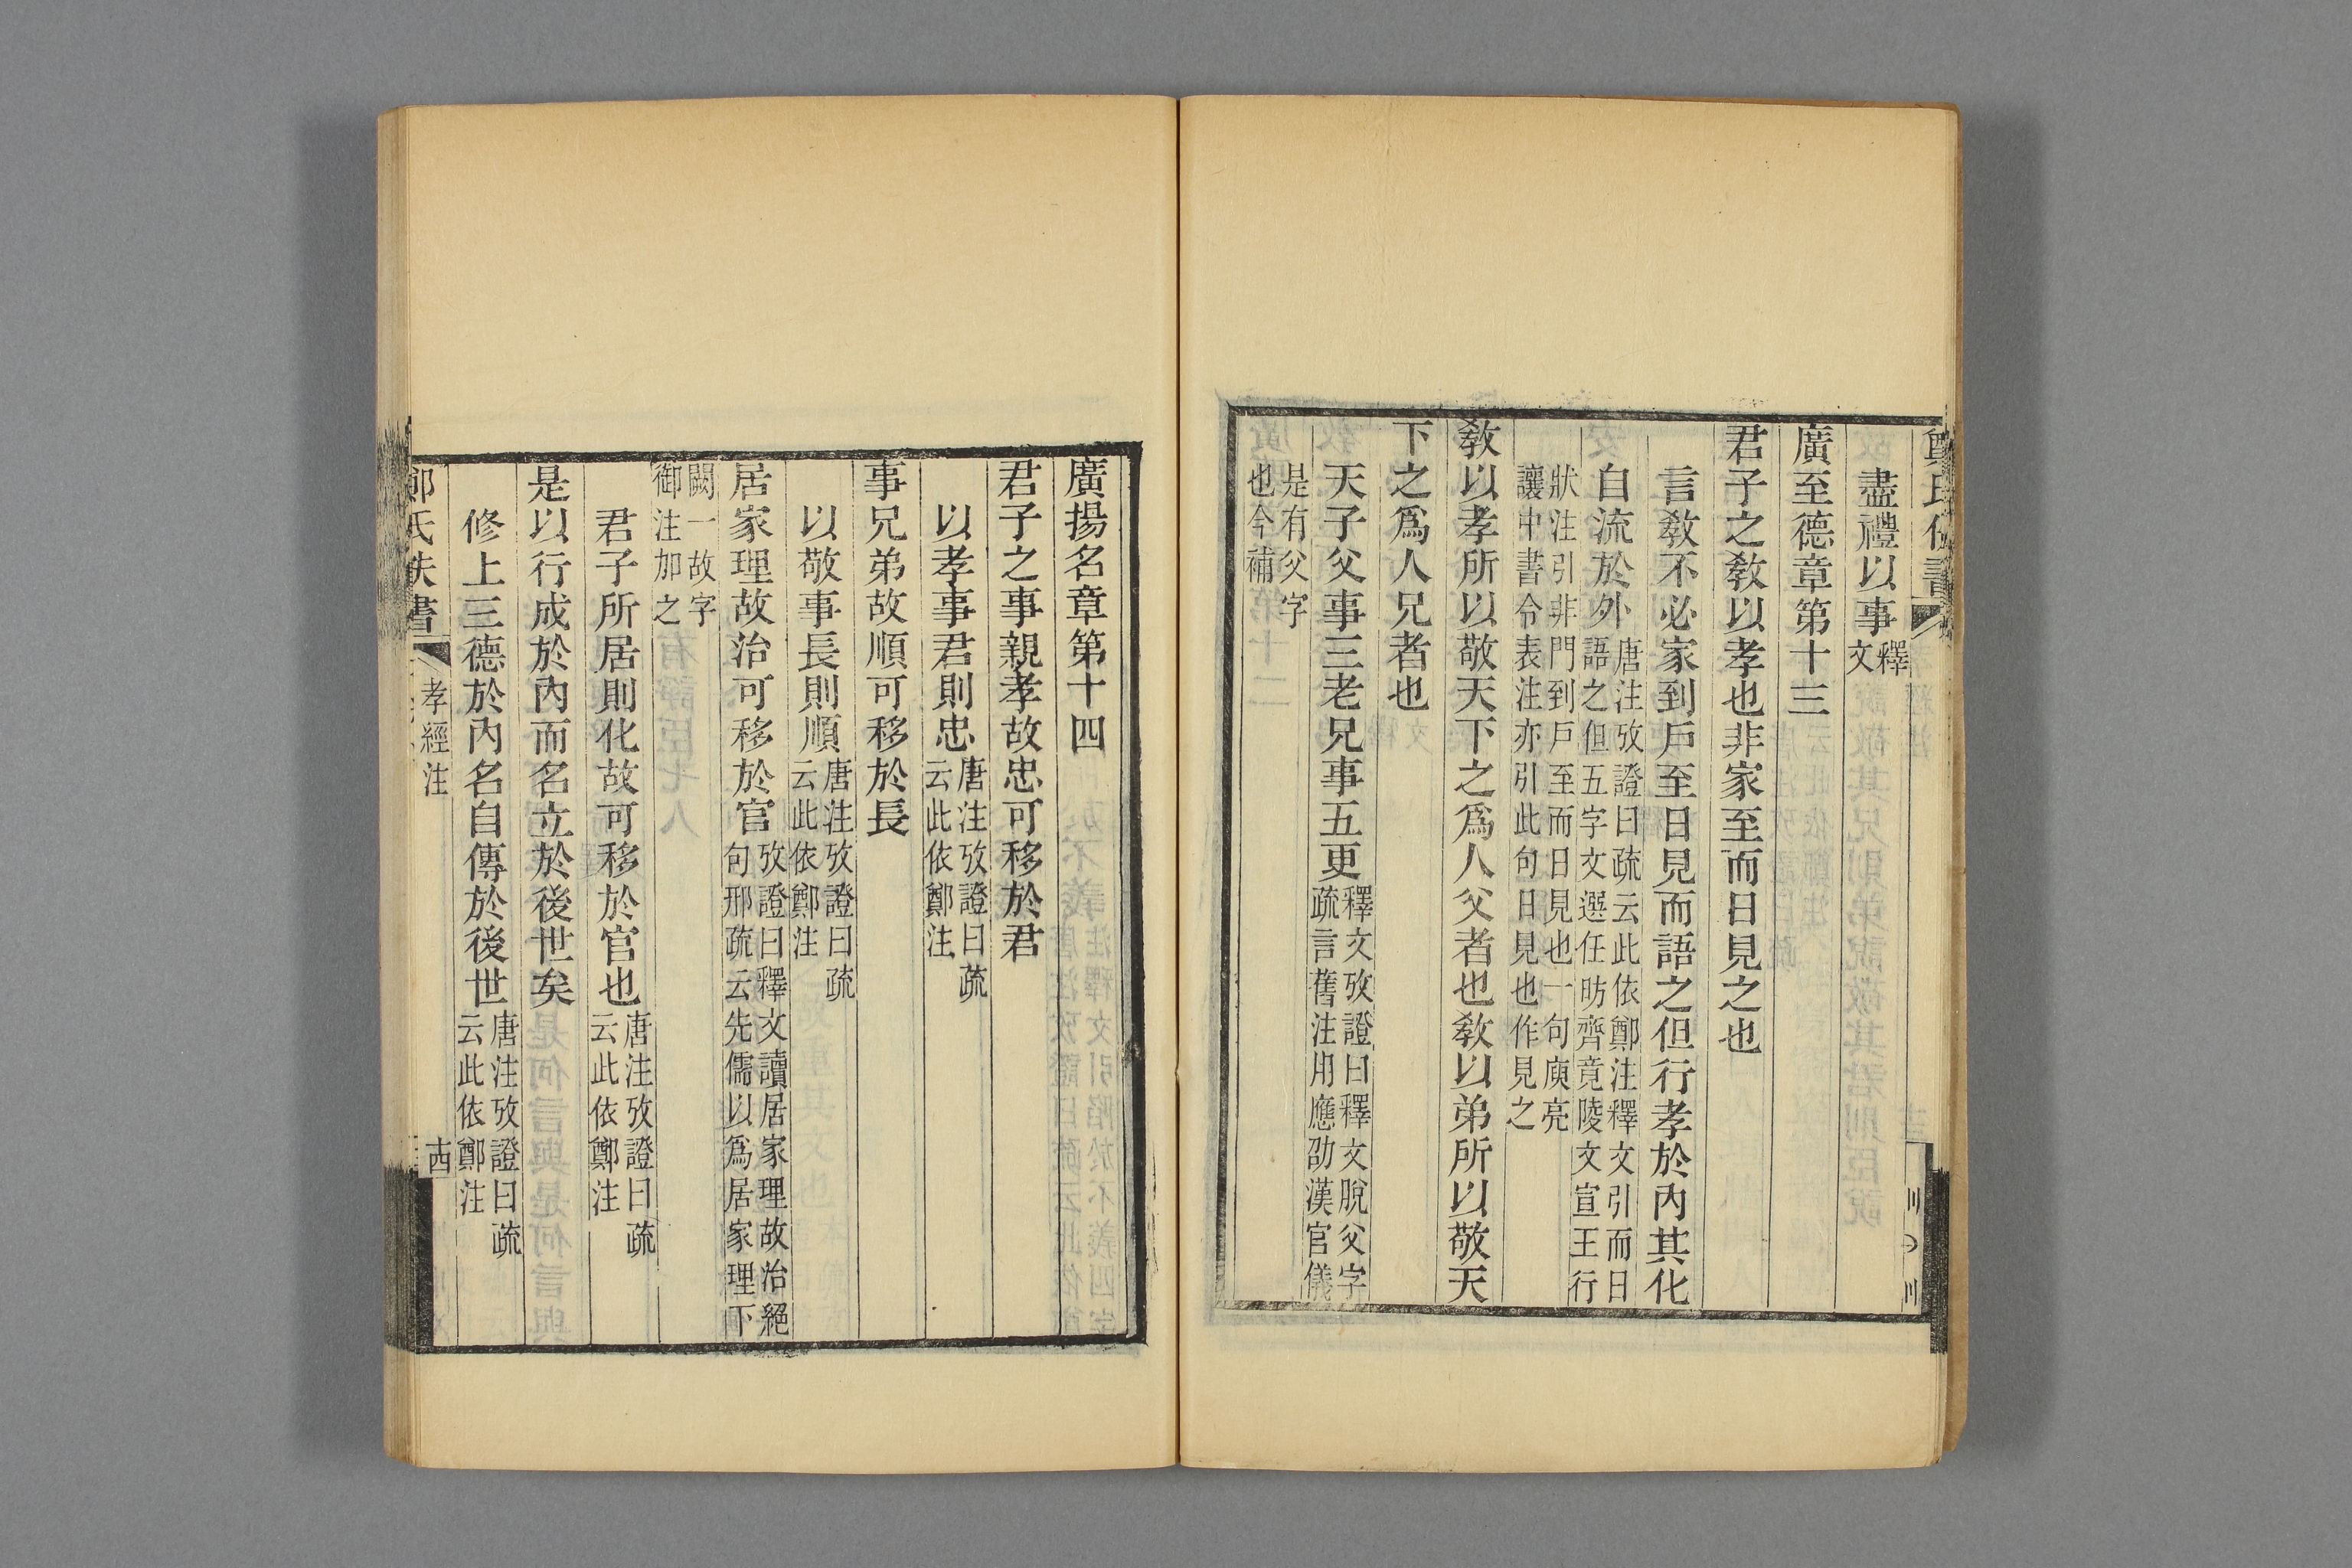 盡禮以事釋文
廣至德章第十三
君子之敎以孝也非家至而日見之也
言敎不必家到戶至日見而語之但行孝於內其化
自流於外唐注攷證曰疏云此依鄭注釋文引而日語之但五字文選任昉齊竟陵文宣王行
狀注引非門到戶至而日見也一句庾亮讓中書令表注亦引此句日見也作見之
敎以孝所以敬天下之爲人父者也敎以弟所以敬天
下之爲人兄者也
天子父事三老兄事五更釋文攷證曰釋文脫父字疏言舊注用應劭漢官儀
是有父字也今補
廣揚名章第十四
君子之事親孝故忠可移於君
以孝事君則忠唐注攷證曰疏云此依鄭注
事兄弟故順可移於長
以敬事長則順唐注攷證曰疏云此依鄭注
居家理故治可移於官攷證曰釋文讀居家理故治絕句邢疏云先儒以爲居家理下
闕一故字御注加之
君子所居則化故可移於官也唐注攷證曰疏云此依鄭注
是以行成於內而名立於後世矣
修上三德於內名自傳於後世唐注攷證曰疏云此依鄭注
鄭氏佚書 孝經注